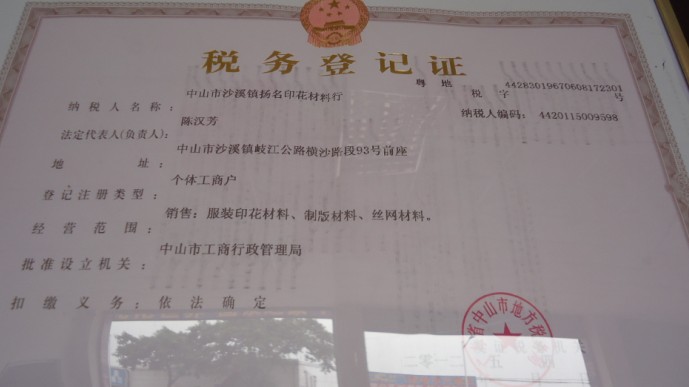 税务登记证
粤地税字 442830196706081722301 号
纳税人编码： 4420115009598
纳税人名称： 中山市沙溪镇扬名印花材料行
法定代表人(负责人)： 陈汉芳
地址： 中山市沙溪镇岐江公路横沙路段93号前座
登记注册类型： 个体工商户
经营范围： 销售：服装印花材料、制版材料、丝网材料。
批准设立机关： 中山市工商行政管理局
扣缴义务：依法确定
省中山市地方税
二零一二 五